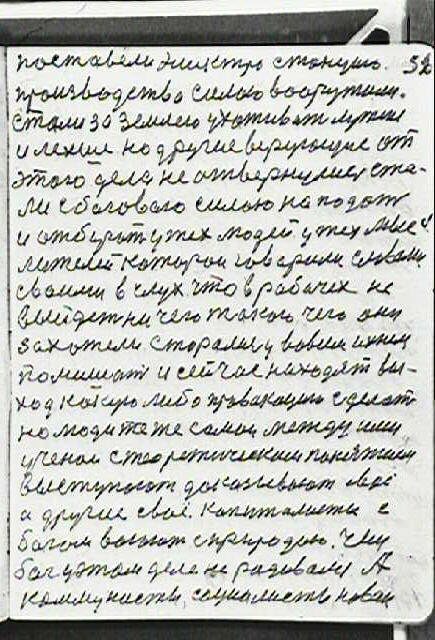 поставели электро станцию. 52
производство силою вооружили.
Стали за землею ухаживат лучше
и лехше но другие верующие от
этого дела не отвернулись ста-
ли с багового силою на подат
и отбират у тех людей у тех мыс
лителей которои говарили словами
своими в слух что в рабачех не
выйдет ни чего такого чего они
захотели старались вовсем
помишат и сейчас находят вы-
ход какую либо правакацию сделат
но люди те же самои между ими
ученои с теоретическими понятиями
выступают доказывают своё
а другие своё. Капиталисты с
багом воюют с природою. Чем
баг у этом деле не радовали А
коммунисты, социалисты новаи